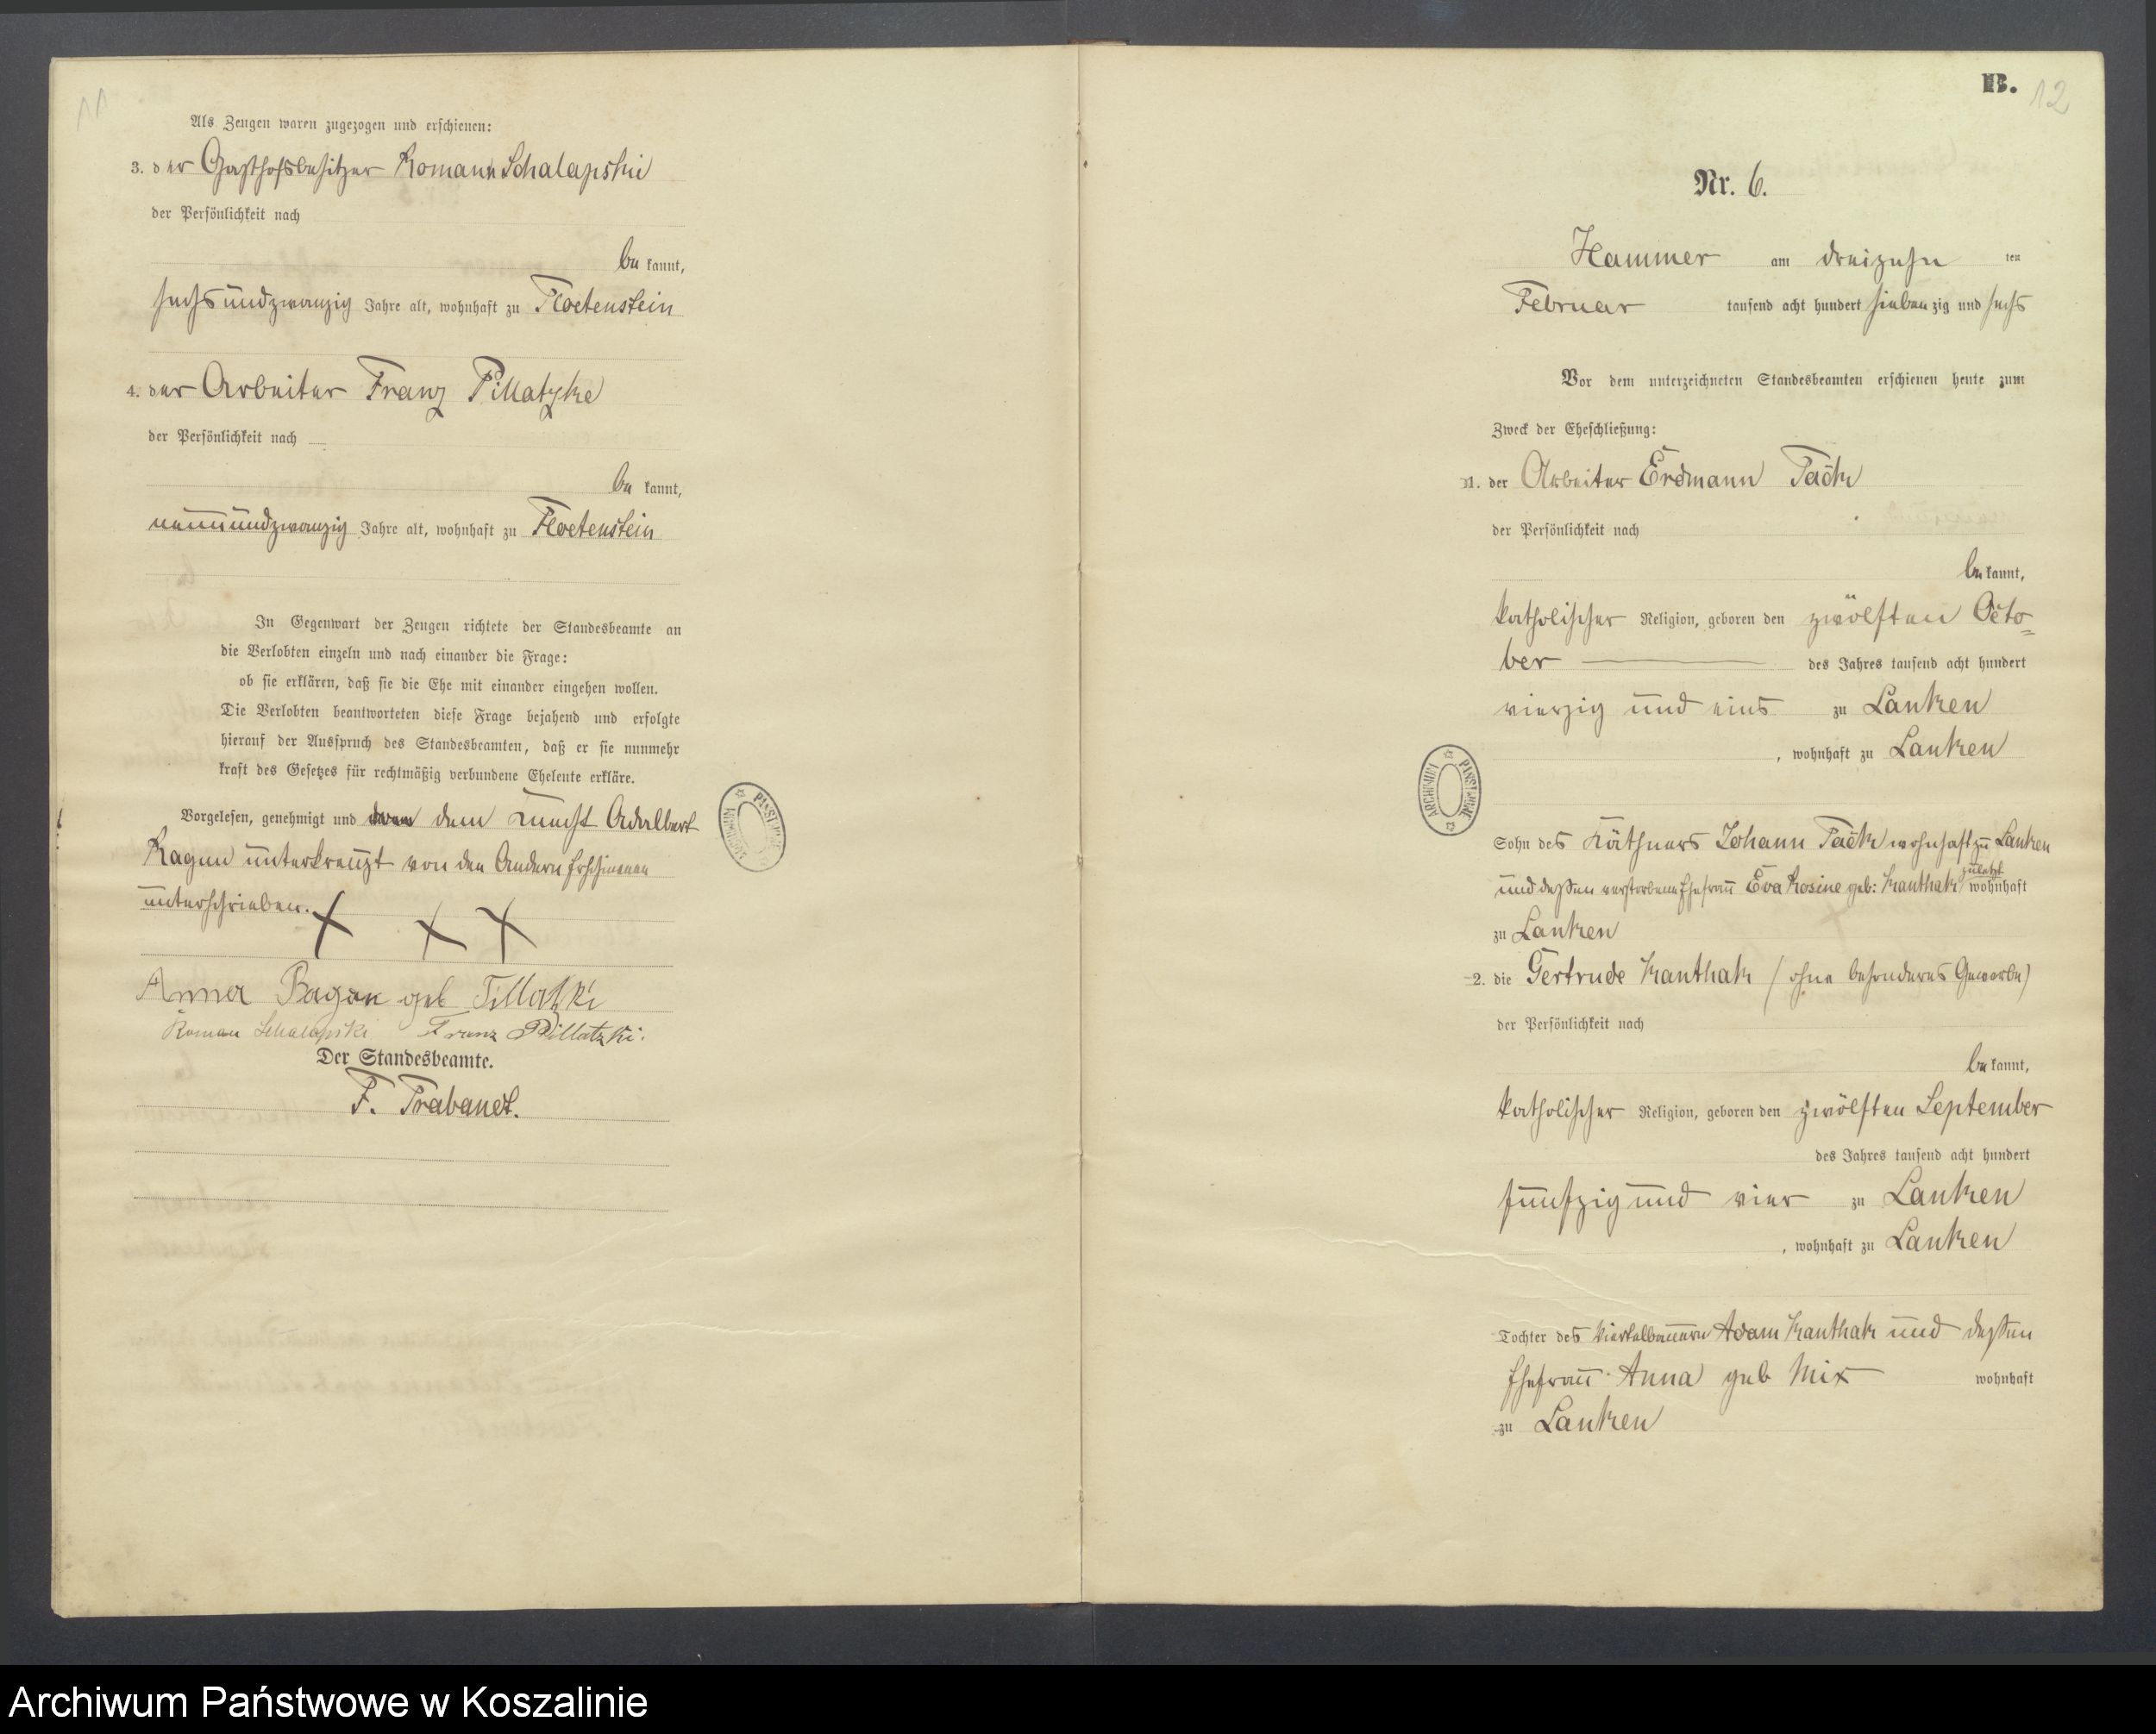 11
Als Zeugen waren zugezogen und erschienen:
3. der Gasthofsbesitzer Romann Schalapski
der Persönlichkeit nach
be kannt,
sechsundzwanzig Jahre alt, wohnhaft zu Floetenstein
4. der Arbeiter Franz Pillatzke
der Persönlichkeit nach
be kannt,
neunundzwanzig Jahre alt, wohnhaft zu Floetenstein
In Gegenwart der Zeugen richtete der Standesbeamte an
die Verlobten einzeln und nach einander die Frage:
ob sie erklären, daß sie die Ehe mit einander eingehen wollen.
Die Verlobten beantworteten diese Frage bejahend und erfolgte
hierauf der Ausspruch des Standesbeamten, daß er sie nunmehr
kraft des Gesetzes für rechtmäßig verbundene Eheleute erkläre.
Vorgelesen, genehmigt und dem Knecht Adalbert
Ragun unterkreuzt von den Andern Erschienenen
unterschrieben. X X X
Anna geb Pillatzki
Roman Schalapski Franz Pillatzki.
Der Standesbeamte.
F. Trabandt.
ARCHIWUM PAŃSTWOWE
B. 12
Nr. 6.
Hammer am dreizehn ten
Februar tausend acht hundert sieben zig und sechs
Vor dem unterzeichneten Standesbeamten erschienen heute zum
Zweck der Eheschließung:
1. der Arbeiter Erdmann
der Persönlichkeit nach
be kannt,
katholischer Religion, geboren den zwölften Octo-
ber des Jahres tausend acht hundert
vierzig und eins zu Lanken
, wohnhaft zu Lanken
ARCHIWUM PAŃSTWOWE
Sohn des Käthners Johann wohnhaft zu Lanken
und dessen verstorbene Ehefrau Eva Rosine geb: Kanthak zuletzt wohnhaft
zu Lanken
2. die Gertrude Kanthak (ohne besonderes Gewerbe)
der Persönlichkeit nach
be kannt,
katholischer Religion, geboren den zwölften September
des Jahres tausend acht hundert
fünfzig und vier zu Lanken
, wohnhaft zu Lanken
Tochter des Viertelbauern Adam Kanthak und dessen
Ehefrau Anna geb Mix wohnhaft
zu Lanken
Archiwum Państwowe w Koszalinie